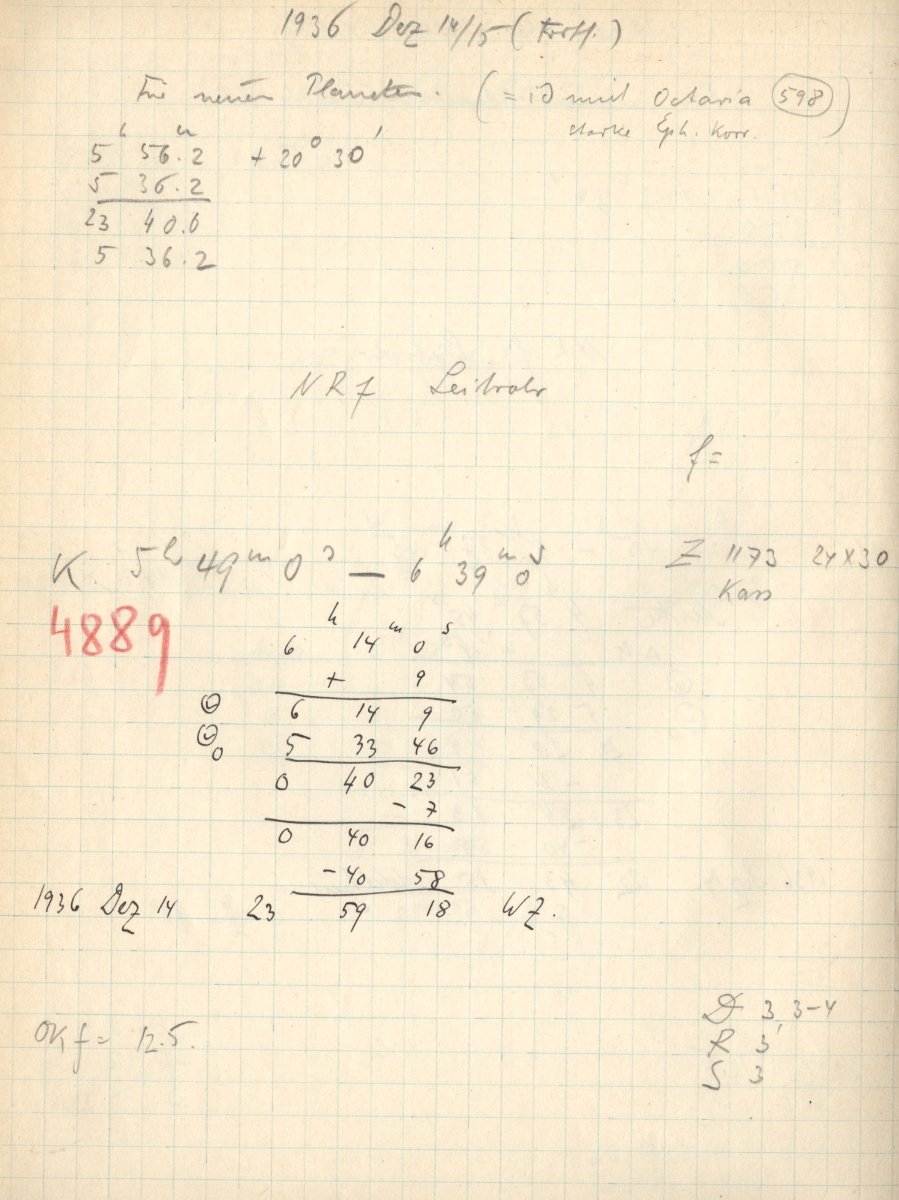 1936 Dez 14/15 (Forts.)
Für neuen Planeten. (= id mit Octavia 598)
starke Eph. Korr.
5ʰ 56.2ᵐ + 20° 30'
5 36.2
23 40.0
5 36.2
NRf Leitrohr
f =
K 5ʰ 49ᵐ 0ˢ — 6ʰ 39ᵐ 0ˢ Z 1173 24×30
Kass
4889
6ʰ 14ᵐ 0ˢ
+ 9
6 14 9
0 5 33 46
0 40 23
- 7
0 40 16
- 40 58
1936 Dez 14 23 59 18 WZ.
OKf = 12.5.
D 3, 3-4
R 3
S 3